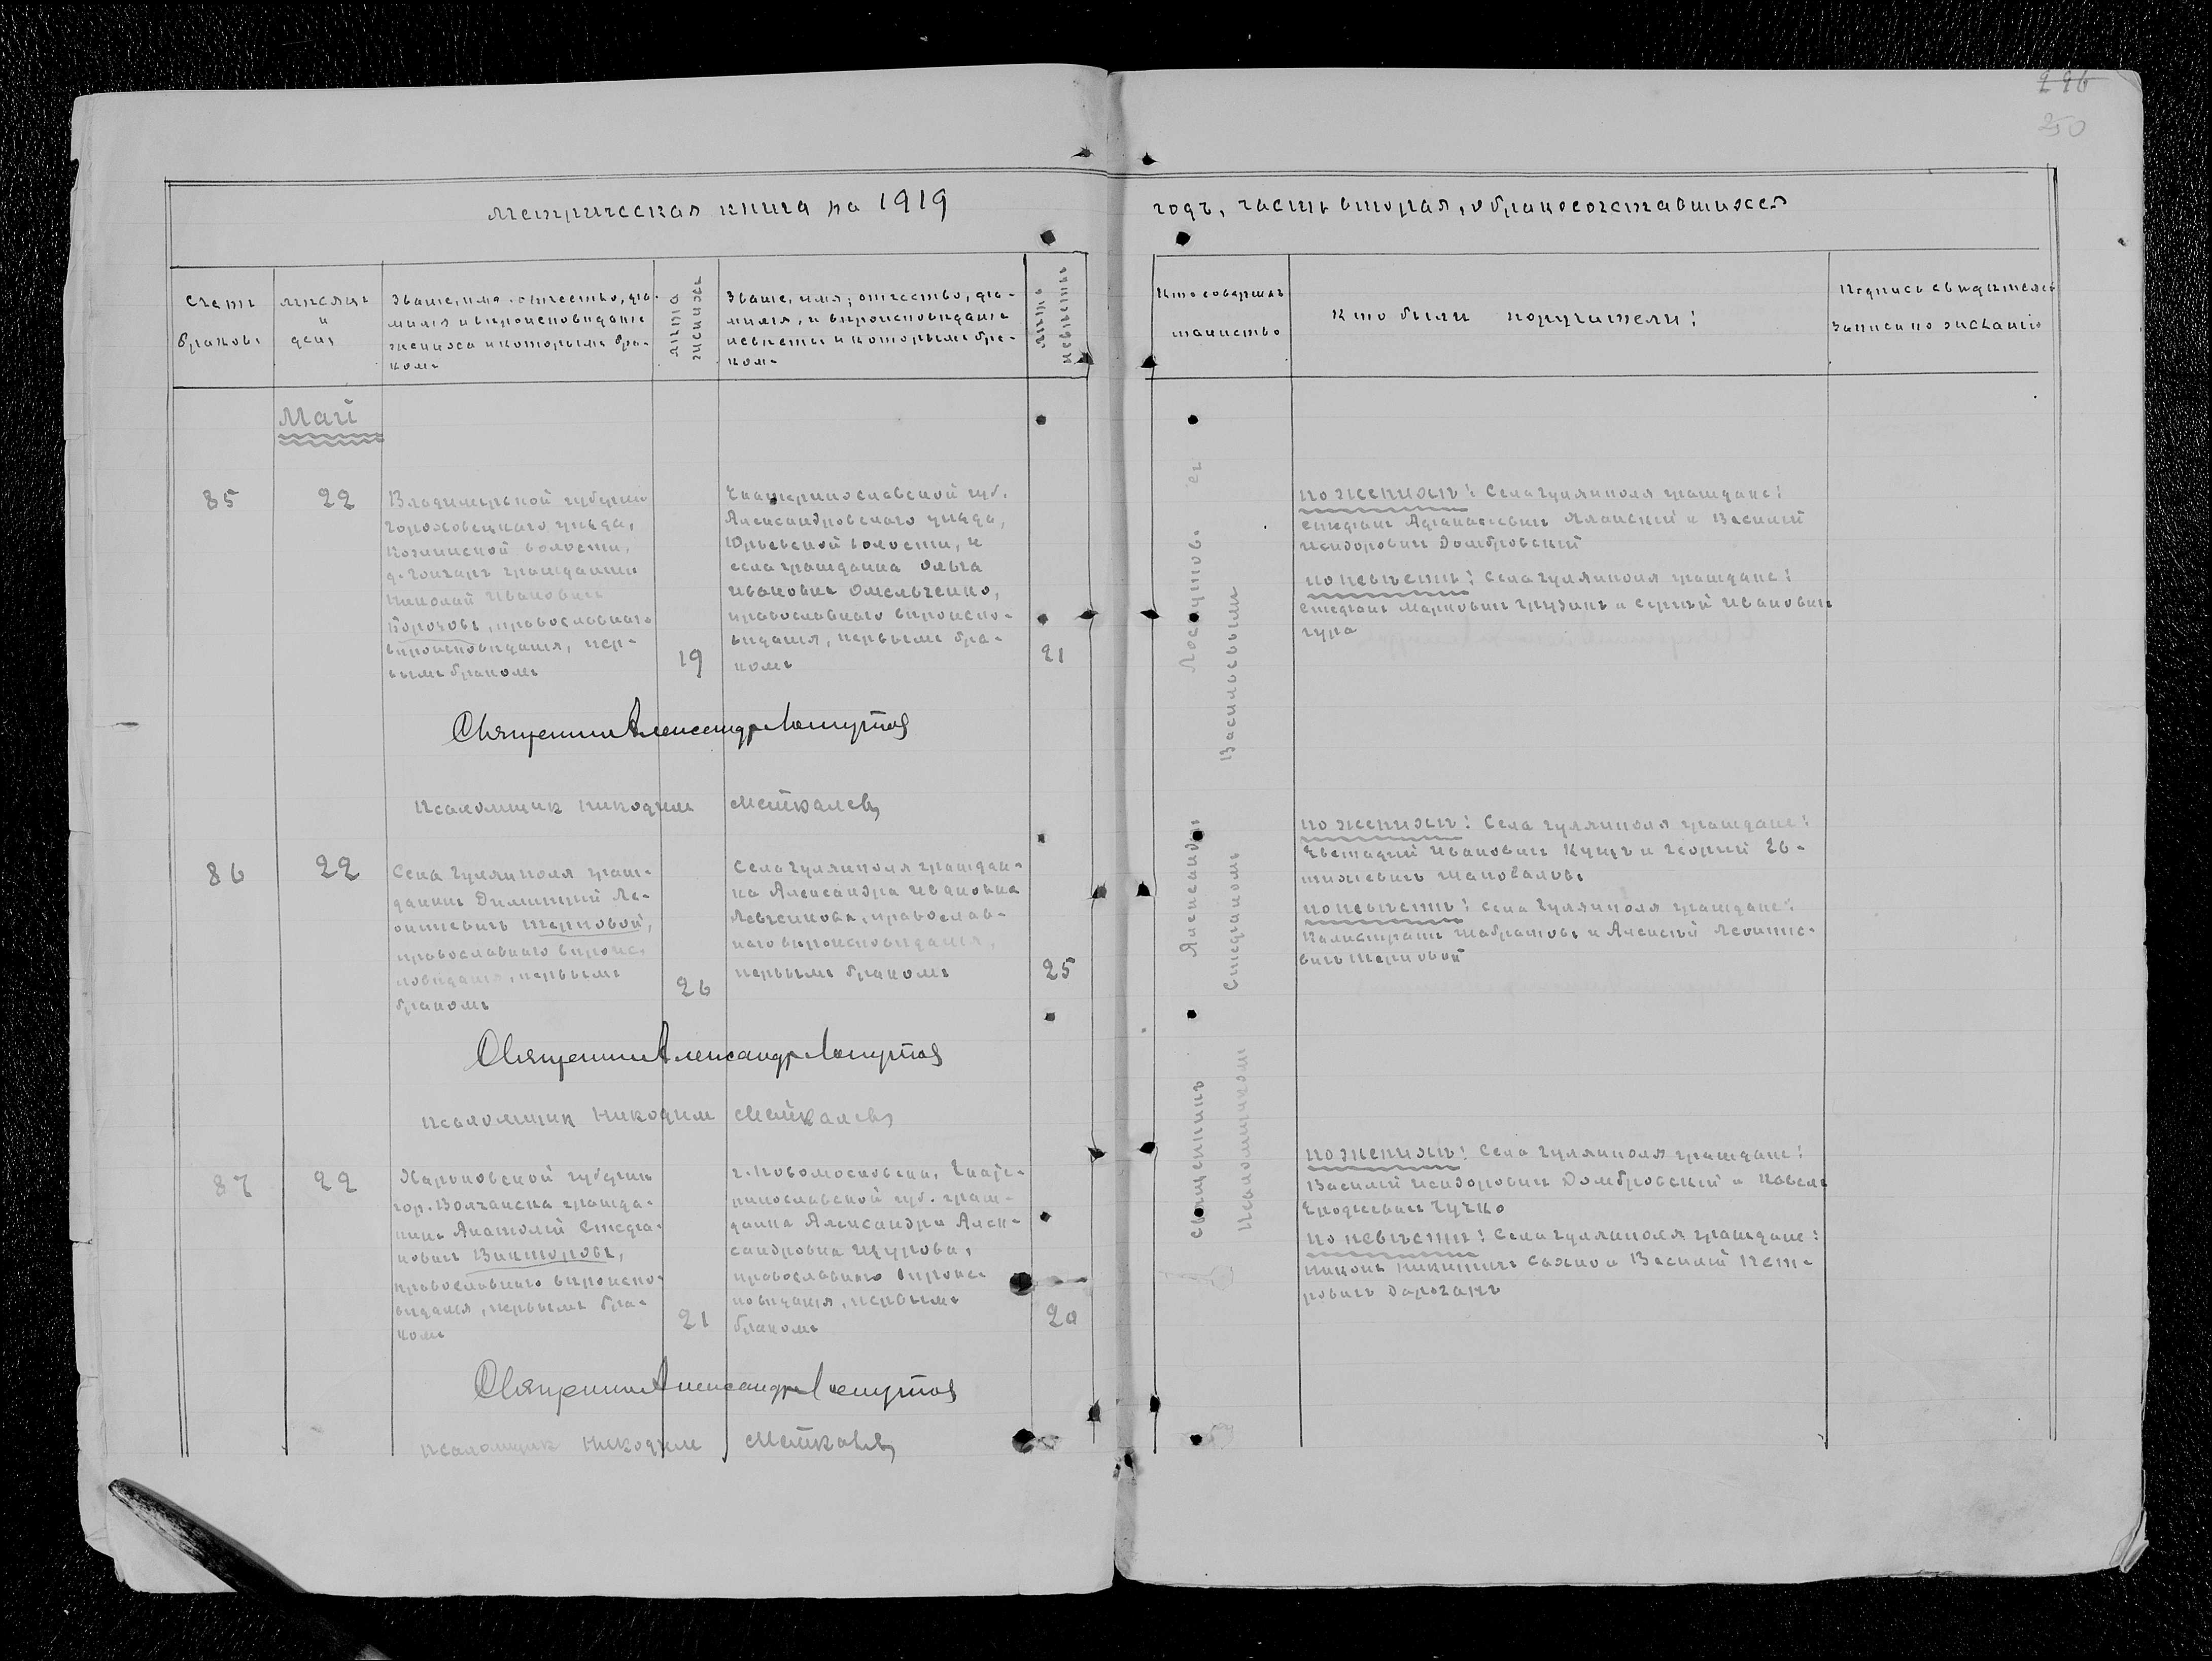 296
250
Метрическая книга на 1919
годъ, часть вторая, о бракосочетавшихся
Счетъ
браковъ
мѣсяцъ
и
день
Званіе, имя, отчество, фа-
милія и вѣроисповѣданіе
жениха и которымъ бра-
комъ
лѣта
жениха
Званіе, имя, отчество, фа-
милія, и вѣроисповѣданіе
невѣсты и которымъ бра-
комъ
лѣта
невѣсты
Кто совершалъ
таинство
Кто были поручители:
Подпись свидѣтелей
записи по желанію
Май
85
22
Владимірской губерніи
Гороховецкаго уѣзда,
волости,
д. гражданинъ
Николай Ивановичъ
православнаго
вѣроисповѣданія, пер-
вымъ бракомъ
19
Екатеринославской губ.
Александровскаго уѣзда,
Юрьевской волости, и
села гражданка Ольга
Ивановна Омельченко,
православнаго вѣроиспо-
вѣданія, первымъ бра-
комъ
21
по женихѣ: Села Гуляйполя граждане:
Стефанъ Афанасьевичъ и Василій
Исидоровичъ Домбровскій
по невѣстѣ: Села Гуляйполя граждане:
Стефанъ Марковичъ и Сергѣй Ивановичъ
Гура
Священникъ Александр Лоскутов
Псаломщик Никодим
86
22
Села Гуляйполя граж-
данинъ Димитрій Ле-
онтіевичъ Терновой,
православнаго вѣроис-
повѣданія, первымъ
бракомъ
26
Села Гуляйполя граждан-
ка Александра Ивановна
Левченкова, православ-
наго вѣроисповѣданія,
первымъ бракомъ
25
по женихѣ: Села Гуляйполя граждане:
Евстафій Ивановичъ Куцъ и Георгій Ев-
тихіевичъ Шаповаловъ
по невѣстѣ: Села Гуляйполя граждане:
Калистратъ Шабратовъ и Алексѣй Леонтіе-
вичъ Терновой
Священникъ Александр Лоскутов
псаломщик Никодим
87
22
Харьковской губерніи
гор. Волчанска гражда-
нинъ Анатолій Стефа-
новичъ Викторовъ,
православнаго вѣроиспо-
вѣданія, первымъ бра-
комъ
21
г. Новомосковска, Екате-
ринославской губ. граж-
данка Александра Алек-
сандровна Щурова,
православнаго вѣроис-
повѣданія, первымъ
бракомъ
20
по женихѣ: Села Гуляйполя граждане:
Василій Исидоровичъ Домбровскій и Павелъ
Чучко
по невѣстѣ: Села Гуляйполя граждане:
Никонъ Никитичъ Сахно и Василій Пет-
ровичъ
Священникъ Александр Лоскутов
псаломщик Никодим
Священникъ Александръ Лоскутовъ съ
Псаломщикомъ Стефаномъ Васильевымъ